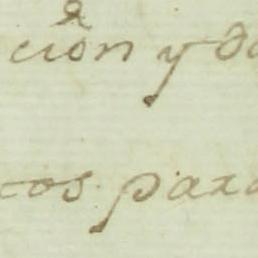 ción y da
tos para